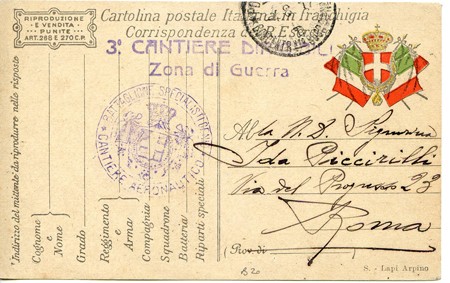 RIPRODUZIONE
E VENDITA
PUNITE
ART. 266 E 270 C.P.
Cartolina postale Italiana in franchigia
Corrispondenza
3° CANTIERE
Zona di Guerra
BATTAGLIONE SPECIALISTI
CANTIERE AERONAUTICO
Indirizzo del mittente da riprodurre nello risposto
Cognome e Nome
Grado
Reggimento e Arma
Compagnia
Squadrone
Batteria
Riparti speciali
N. D. Signorina
Ida Piccirilli
Via del Progresso 23
Roma
Prov. di
S. - Lapi Arpino